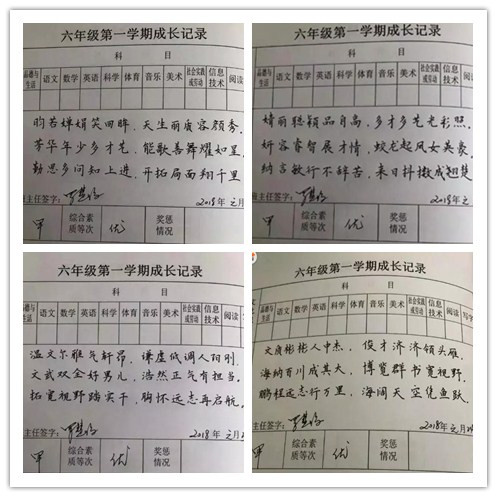 六年级第一学期成长记录
科 目
品德与生活 语文 数学 英语 科学 体育 音乐 美术 社会实践或劳动 信息技术 阅读
昀若婵娟笑回眸，天生丽质容颜秀。
芳华年少多才艺，能歌善舞耀如星。
勤思多问知上进，开拓局面翔千里
主任签字：
2018 元月
甲 综合素质等次 优 奖惩情况
六年级第一学期成长记录
科 目
品德与生活 语文 数学 英语 科学 体育 音乐 美术 社会实践或劳动 信息技术 阅读
婧丽聪颖品自高，多才多艺光彩照。
妍容睿智展才情，蛟龙起凤女英豪。
纳言敏行不辞苦，来日抖擞成翘楚
主任签字：
2018年元
甲 综合素质等次 优 奖惩情况
六年级第一学期成长记录
科 目
品德与生活 语文 数学 英语 科学 体育 音乐 美术 社会实践或劳动 信息技术 阅读
温文尔雅气轩昂，谦虚低调人阳刚。
文武双全好男儿，浩然正气有担当。
拓宽视野踏实干，胸怀远志再启航。
主任签字：
2018 元月
甲 综合素质等次 优 奖惩情况
六年级第一学期成长记录
科 目
品德与生活 语文 数学 英语 科学 体育 音乐 美术 社会实践或劳动 信息技术 阅读 写字
文质彬彬人中杰，俊才济济领头雁。
海纳百川成其大，博览群书宽视野。
鹏程远志行万里，海阔天空凭鱼跃。
主任签字：
2018年元月
甲 综合素质等次 优 奖惩情况